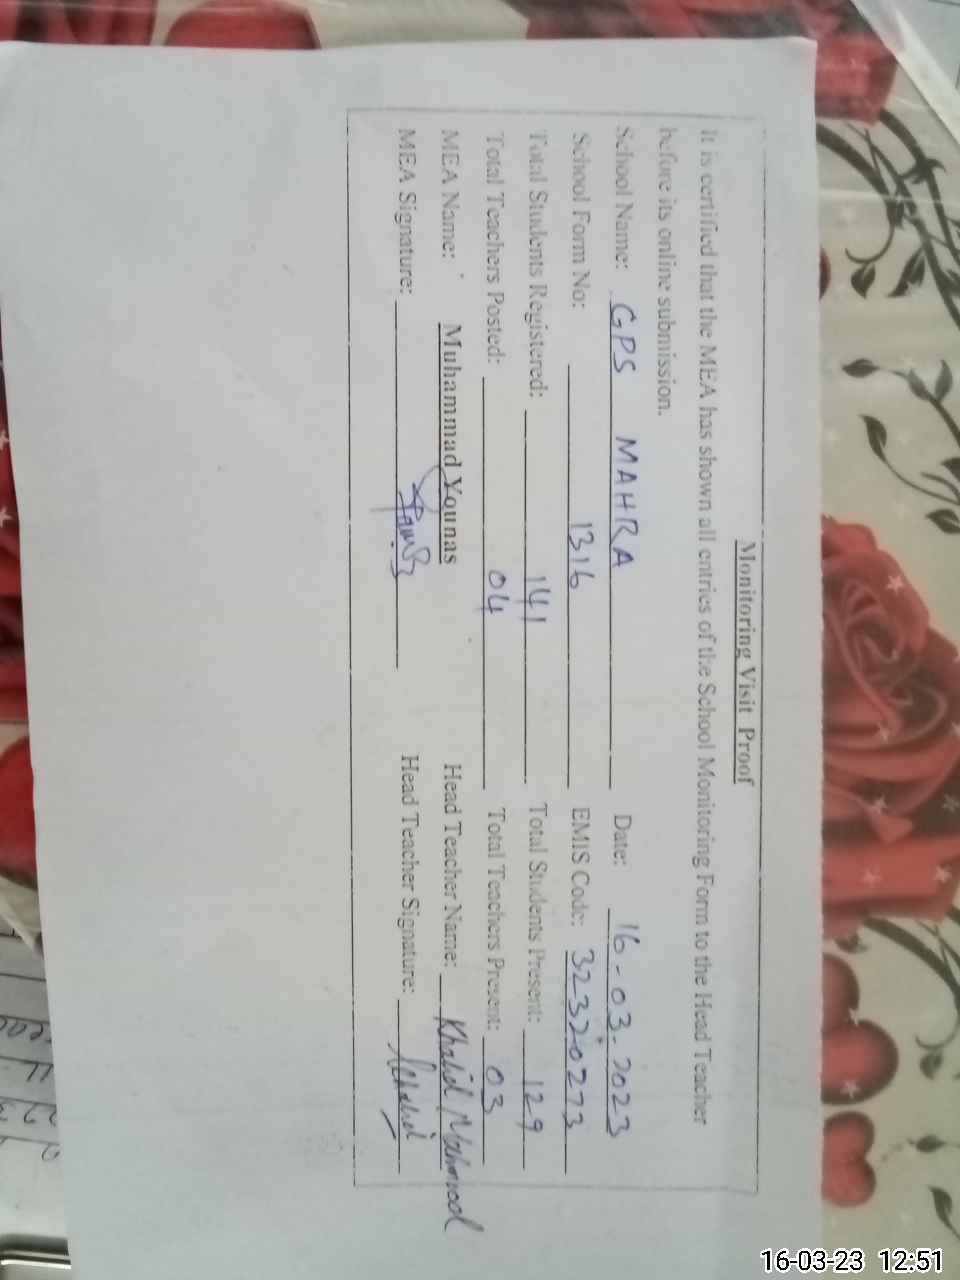 Monitoring Visit Proof
It is certified that the MEA has shown all entries of the School Monitoring Form to the Head Teacher
before its online submission.
School Name: GPS MAHRA Date: 16-03-2023
School Form No: 1316 EMIS Code: 32320273
Total Students Registered: 141 Total Students Present: 129
Total Teachers Posted: 04 Total Teachers Present: 03
MEA Name: Muhammad Younas Head Teacher Name: Khalid Mahmood
MEA Signature: Head Teacher Signature:
16-03-23 12:51